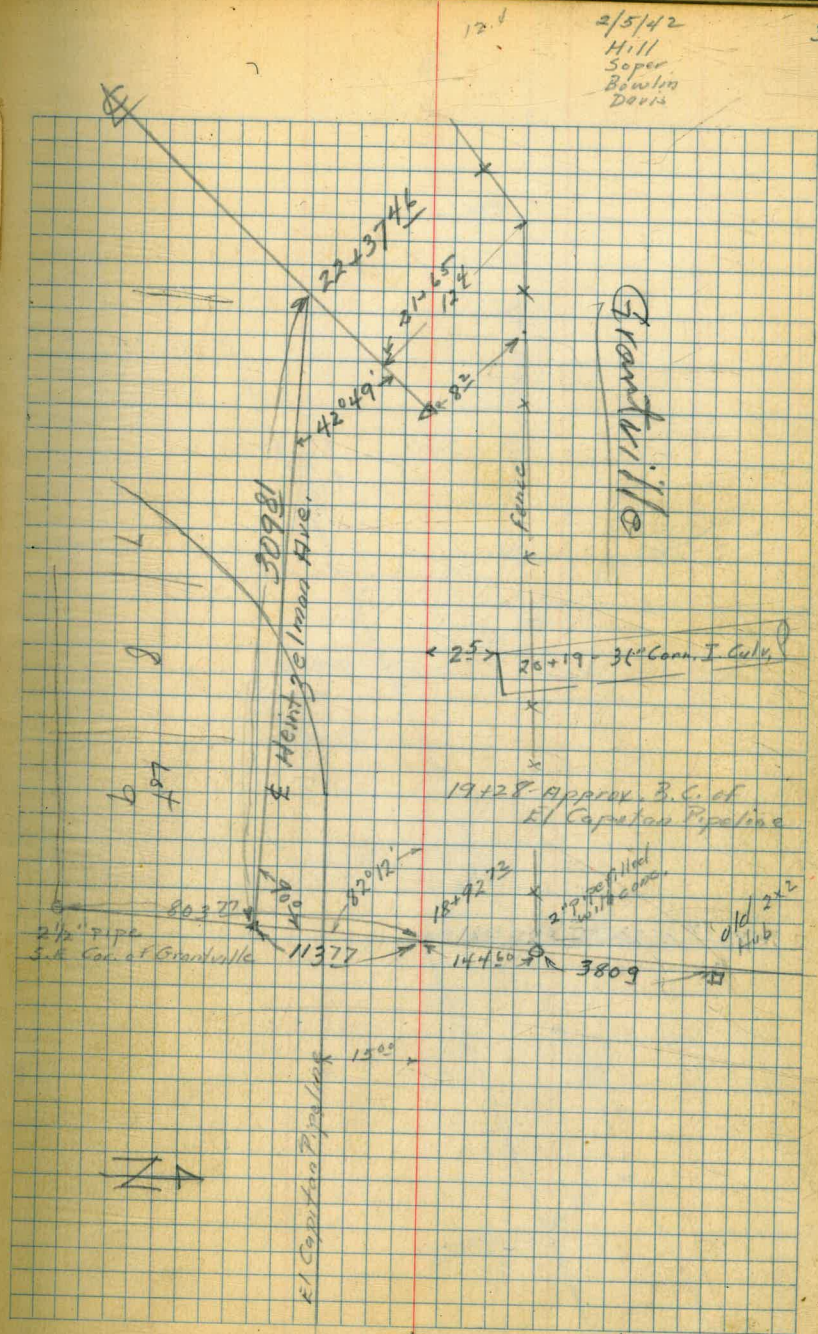 2/5/42
Hill
Soper
Bowlin
Davis
22+37 46
21+65
12 4
8 2
42°49'
Grantville
fence
309 81
℄ Heintzelman Ave.
7
8
Lot
9
2 5
20+19 - 36" Corr. I. Culv.
19+28 - Approx. B.C. of
El Capitan Pipeline
82°12'
18+92 73
2" pipe filled
with conc.
old 2x2
Hub
803 77
2 1/2" pipe
S.E. Cor. of Grantville
113 77
144 60
38 09
15 00
El Capitan Pipeline
N